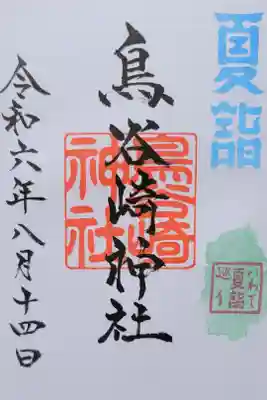 夏詣
鳥谷崎神社
令和六年八月十四日
鳥谷崎
神社
いわて
夏詣